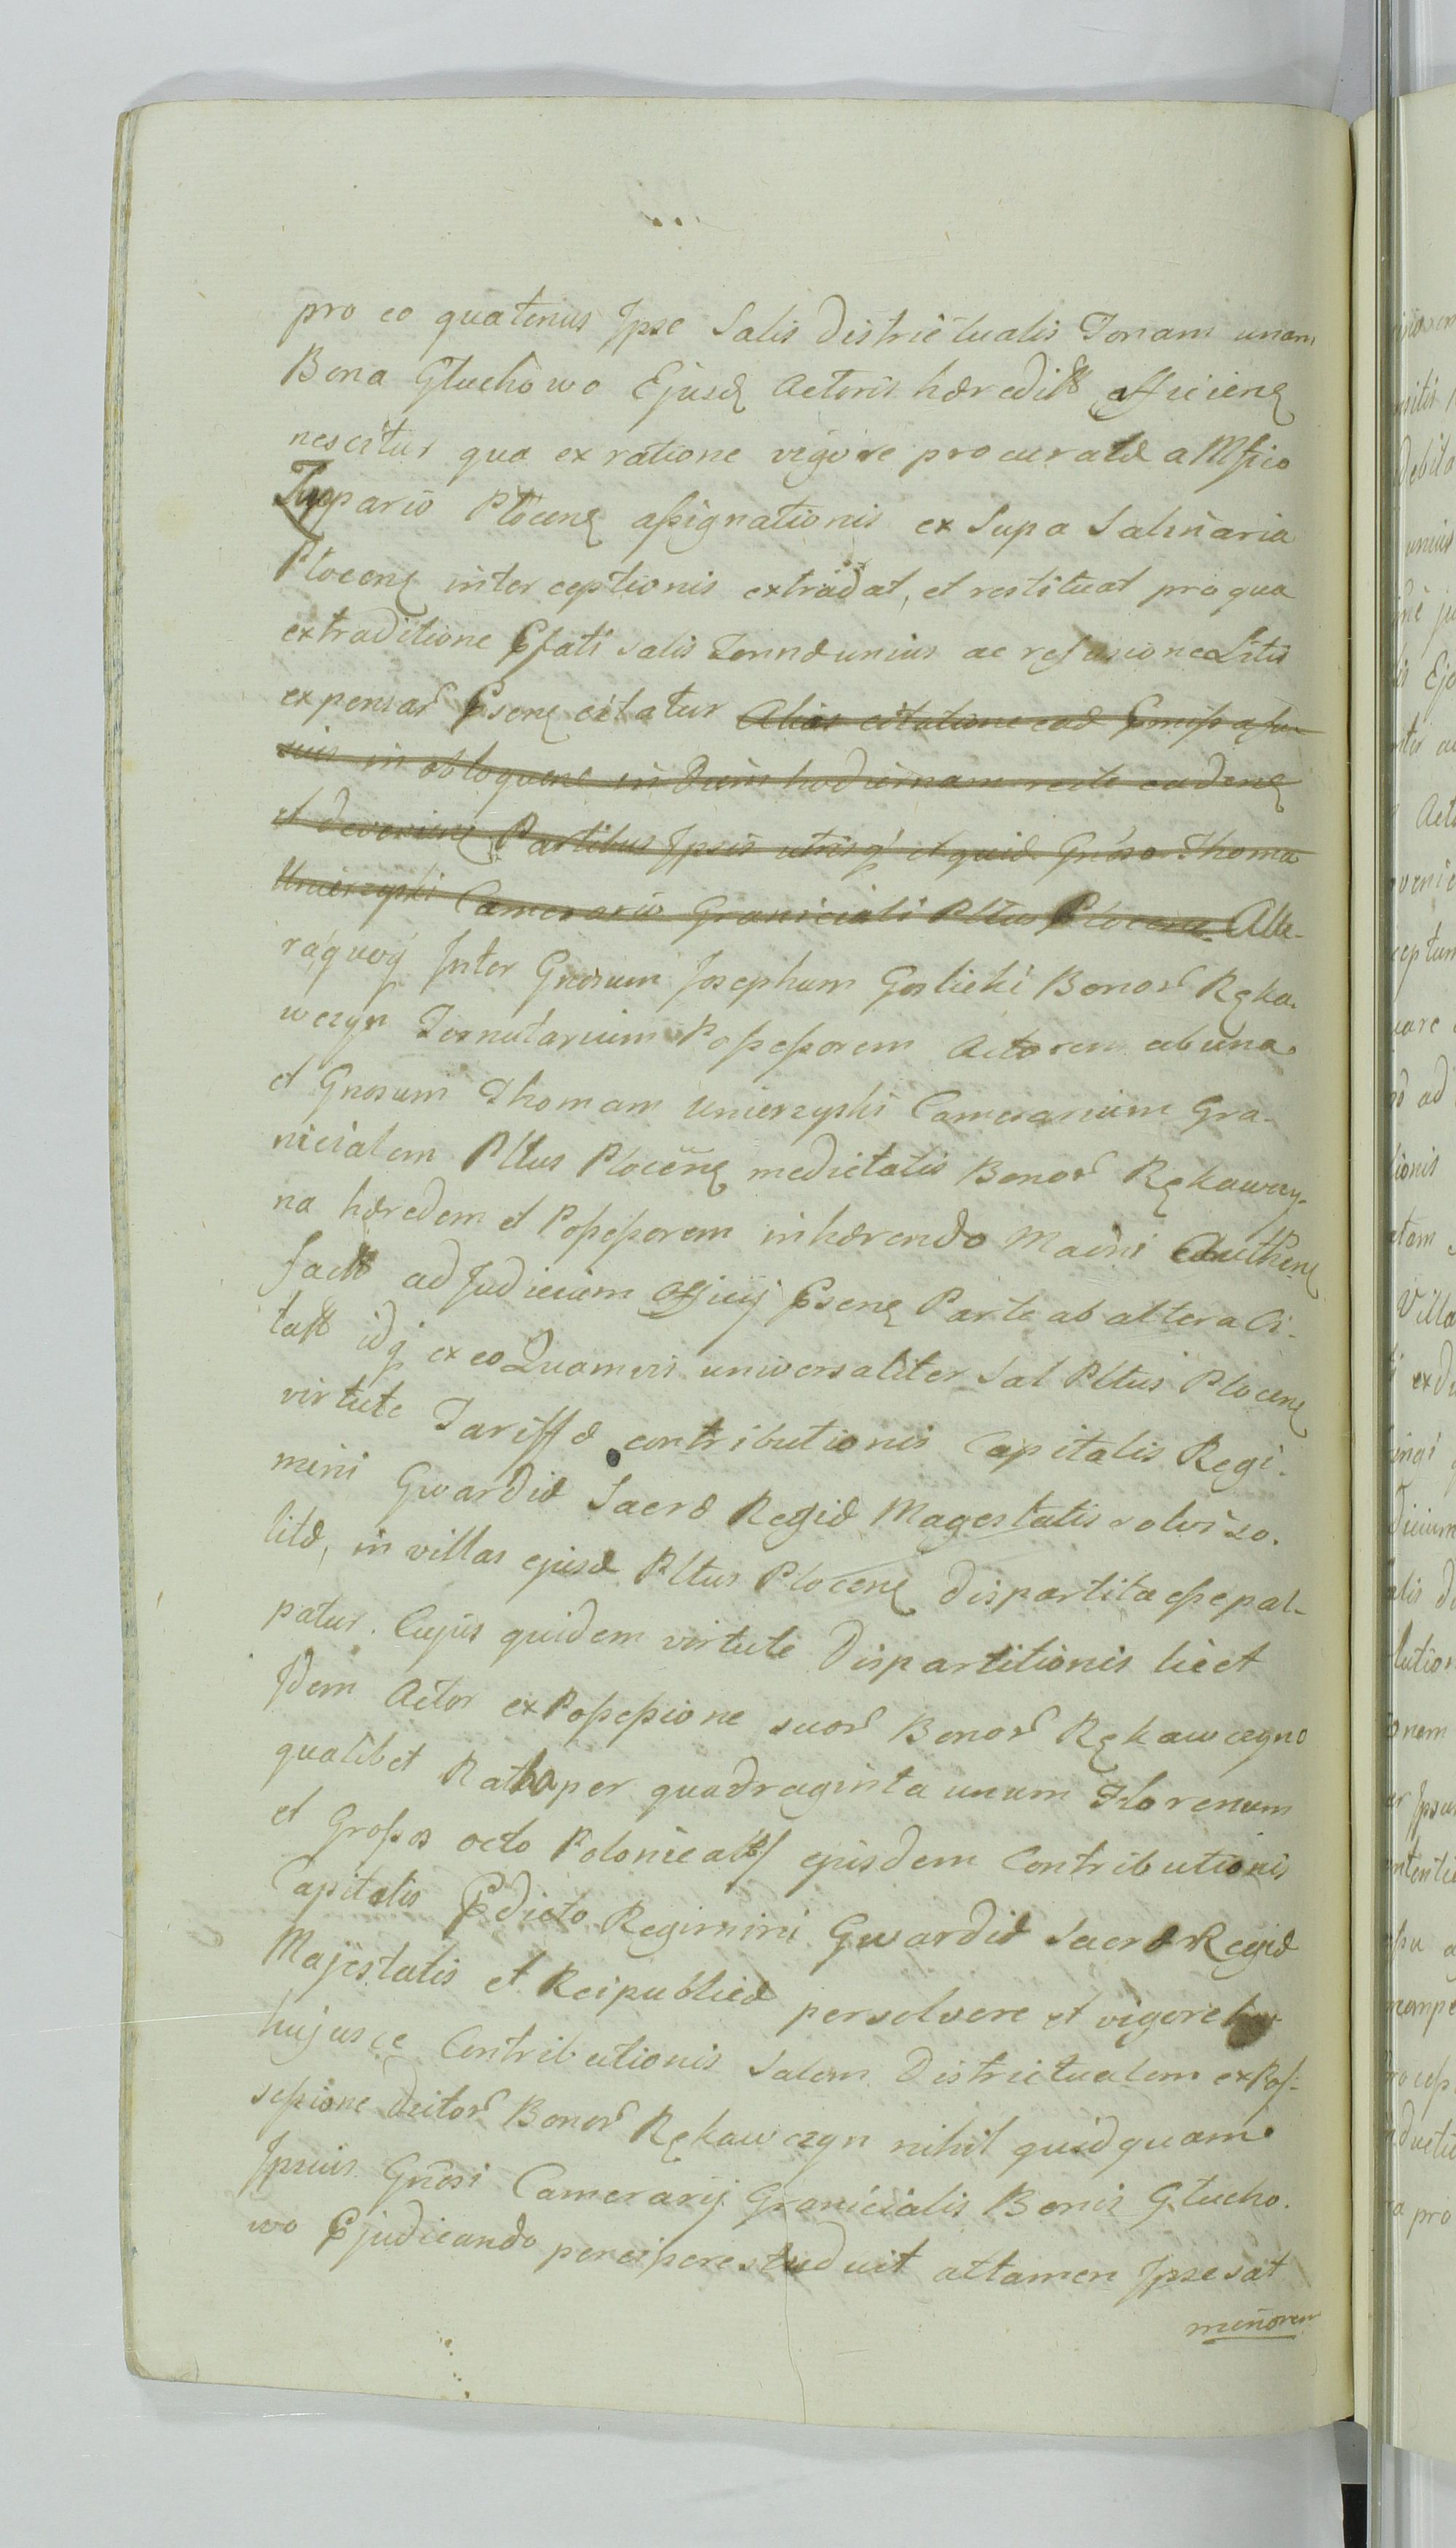 pro eo quatenus Ipse Salis districtualis Tonam unam
Bona Głuchowo Ejusd Actoris hæredit afficien
nescitur qua ex ratione vigore procuratæ a Mfico
Zuppario Płocen assignationis ex Supa Salinaria
Płocen interceptionis extradat, et restituat pro qua
extraditione Pfati salis Tonnæ unius ac refusione Litis
expensar Psens citatur Alias citatione ead
in obloquene in Diem hodiernam recte caden
et devenien Partibus Ipsis utrisq et quid Gnoso Thoma
Unierzyski Camerario Graniciali Pltus Plocen Alte-
raquoq Inter Gnosum Josephum Gosticki Bonor Ręka-
wczyn Tennutarium Possessorem Actorem ab una
et Gnosum Thomam Unierzyski Camerarium Gra-
nicialem Pltus Plocen medietatis Bonor Rękawczy-
na hæredem et Possessorem inhærendo Macni Authen
fact ad Judicium Officij Psens Parte ab altera Ci-
tatt idq ex eo Quamvis universaliter Sal Pltus Plocen
virtute Tariffæ contributionis Capitalis Regi-
mini Gwardiæ Sacræ Regiæ Magestatis solvi so-
litæ, in villas ejusd Pltus Plocen dispartita esse pal-
patur. Cujus quidem virtute Dispartitionis licet
Idem Actor ex Possessione suor Bonor Rękawczyno
qualibet Rata per quadraginta unum Florenum
et Grossos octo Polonicalt ejusdem Contributionis
Capitalis Pdicto Regimini Gwardiæ Sacræ Regiæ
Majestatis et Reipublicæ persolvere et vigore
hujusce Contributionis Salem Districtualem ex Pos-
sessione dictor Bonor Rękawczyn nihil quidquam
Ipsius Gnosi Camerarij Granicialis Bonis Głucho-
wo Pjudicando percipere studuit attamen Ipse sat
minorem